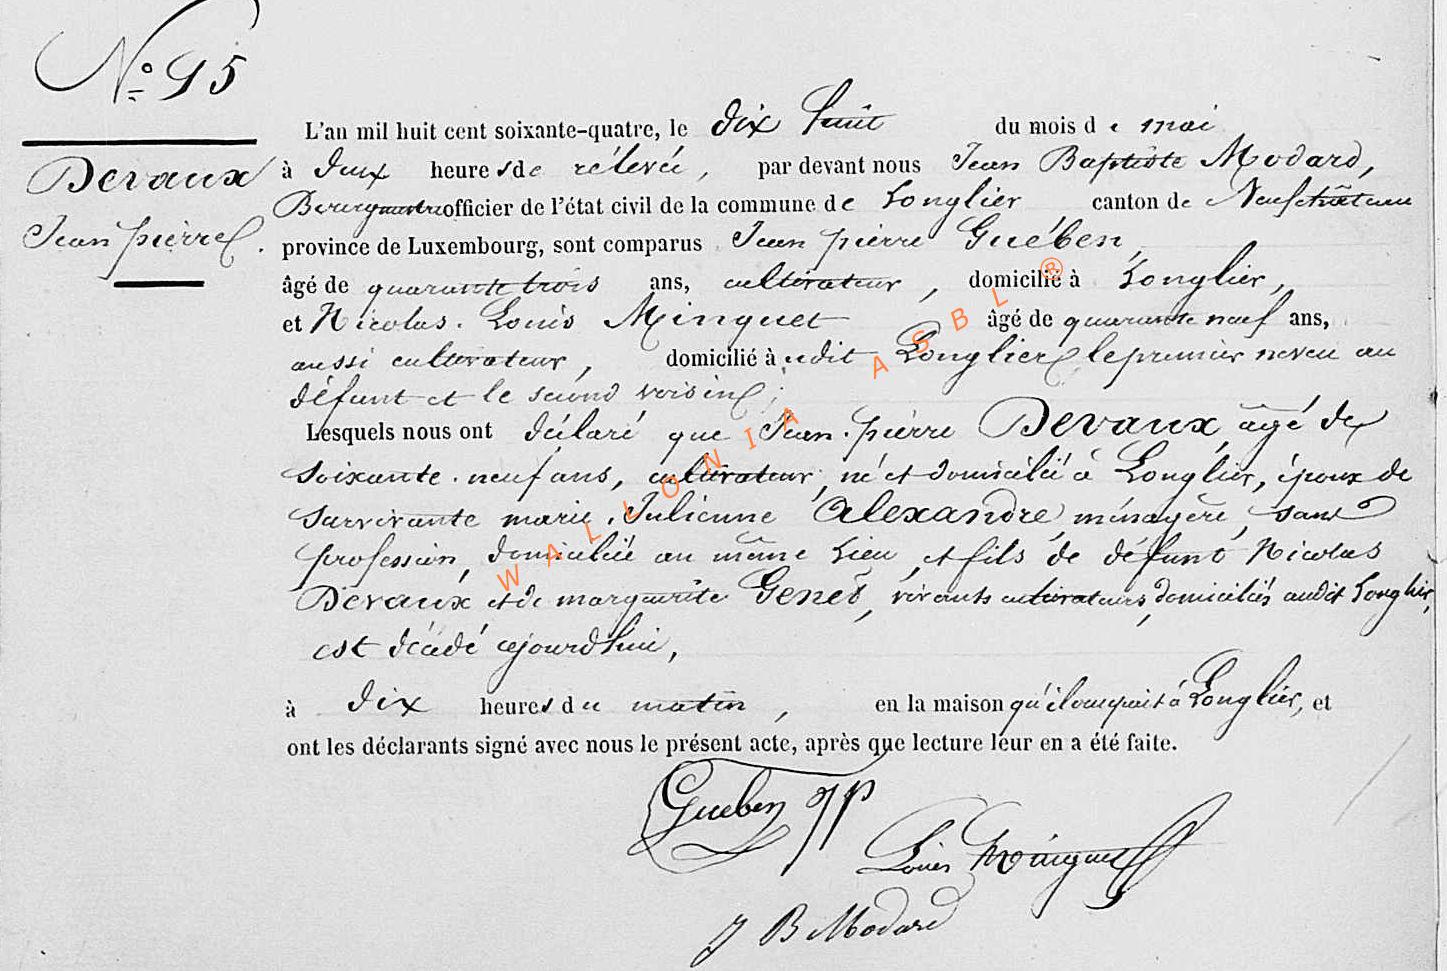 N° 95
Devaux
Jean pierre.
L'an mil huit cent soixante-quatre, le dix huit du mois de mai
à deux heures de rélevée, par devant nous Jean Baptiste Modard,
Bourgmestre officier de l'état civil de la commune de Longlier canton de Neufchâteau
province de Luxembourg, sont comparus Jean pierre Guében,
âgé de quarante trois ans, cultivateur, domicilié à Longlier,
et Nicolas. Louis Minguet âgé de quarante neuf ans,
aussi cultivateur, domicilié à udit Longlier le premier neveu au
défunt et le second voisin;
Lesquels nous ont déclaré que Jean. pierre Devaux, âgé de
soixante. neuf ans, cultivateur, né et domicilié à Longlier, époux de
survivante marie. Julienne Alexandre ménagère, sans
profession, domiciliée au même Lieu, et fils de défunt Nicolas
Devaux et de marguerite Genet, vivants cultivateurs, domiciliés audit Longlier,
est décédé ajourd'hui,
à dix heures du matin, en la maison qu'il occupait à Longlier, et
ont les déclarants signé avec nous le présent acte, après que lecture leur en a été faite.
Gueben JP
Louis Minguet
J B Modard
WALLONIA ASBL ®